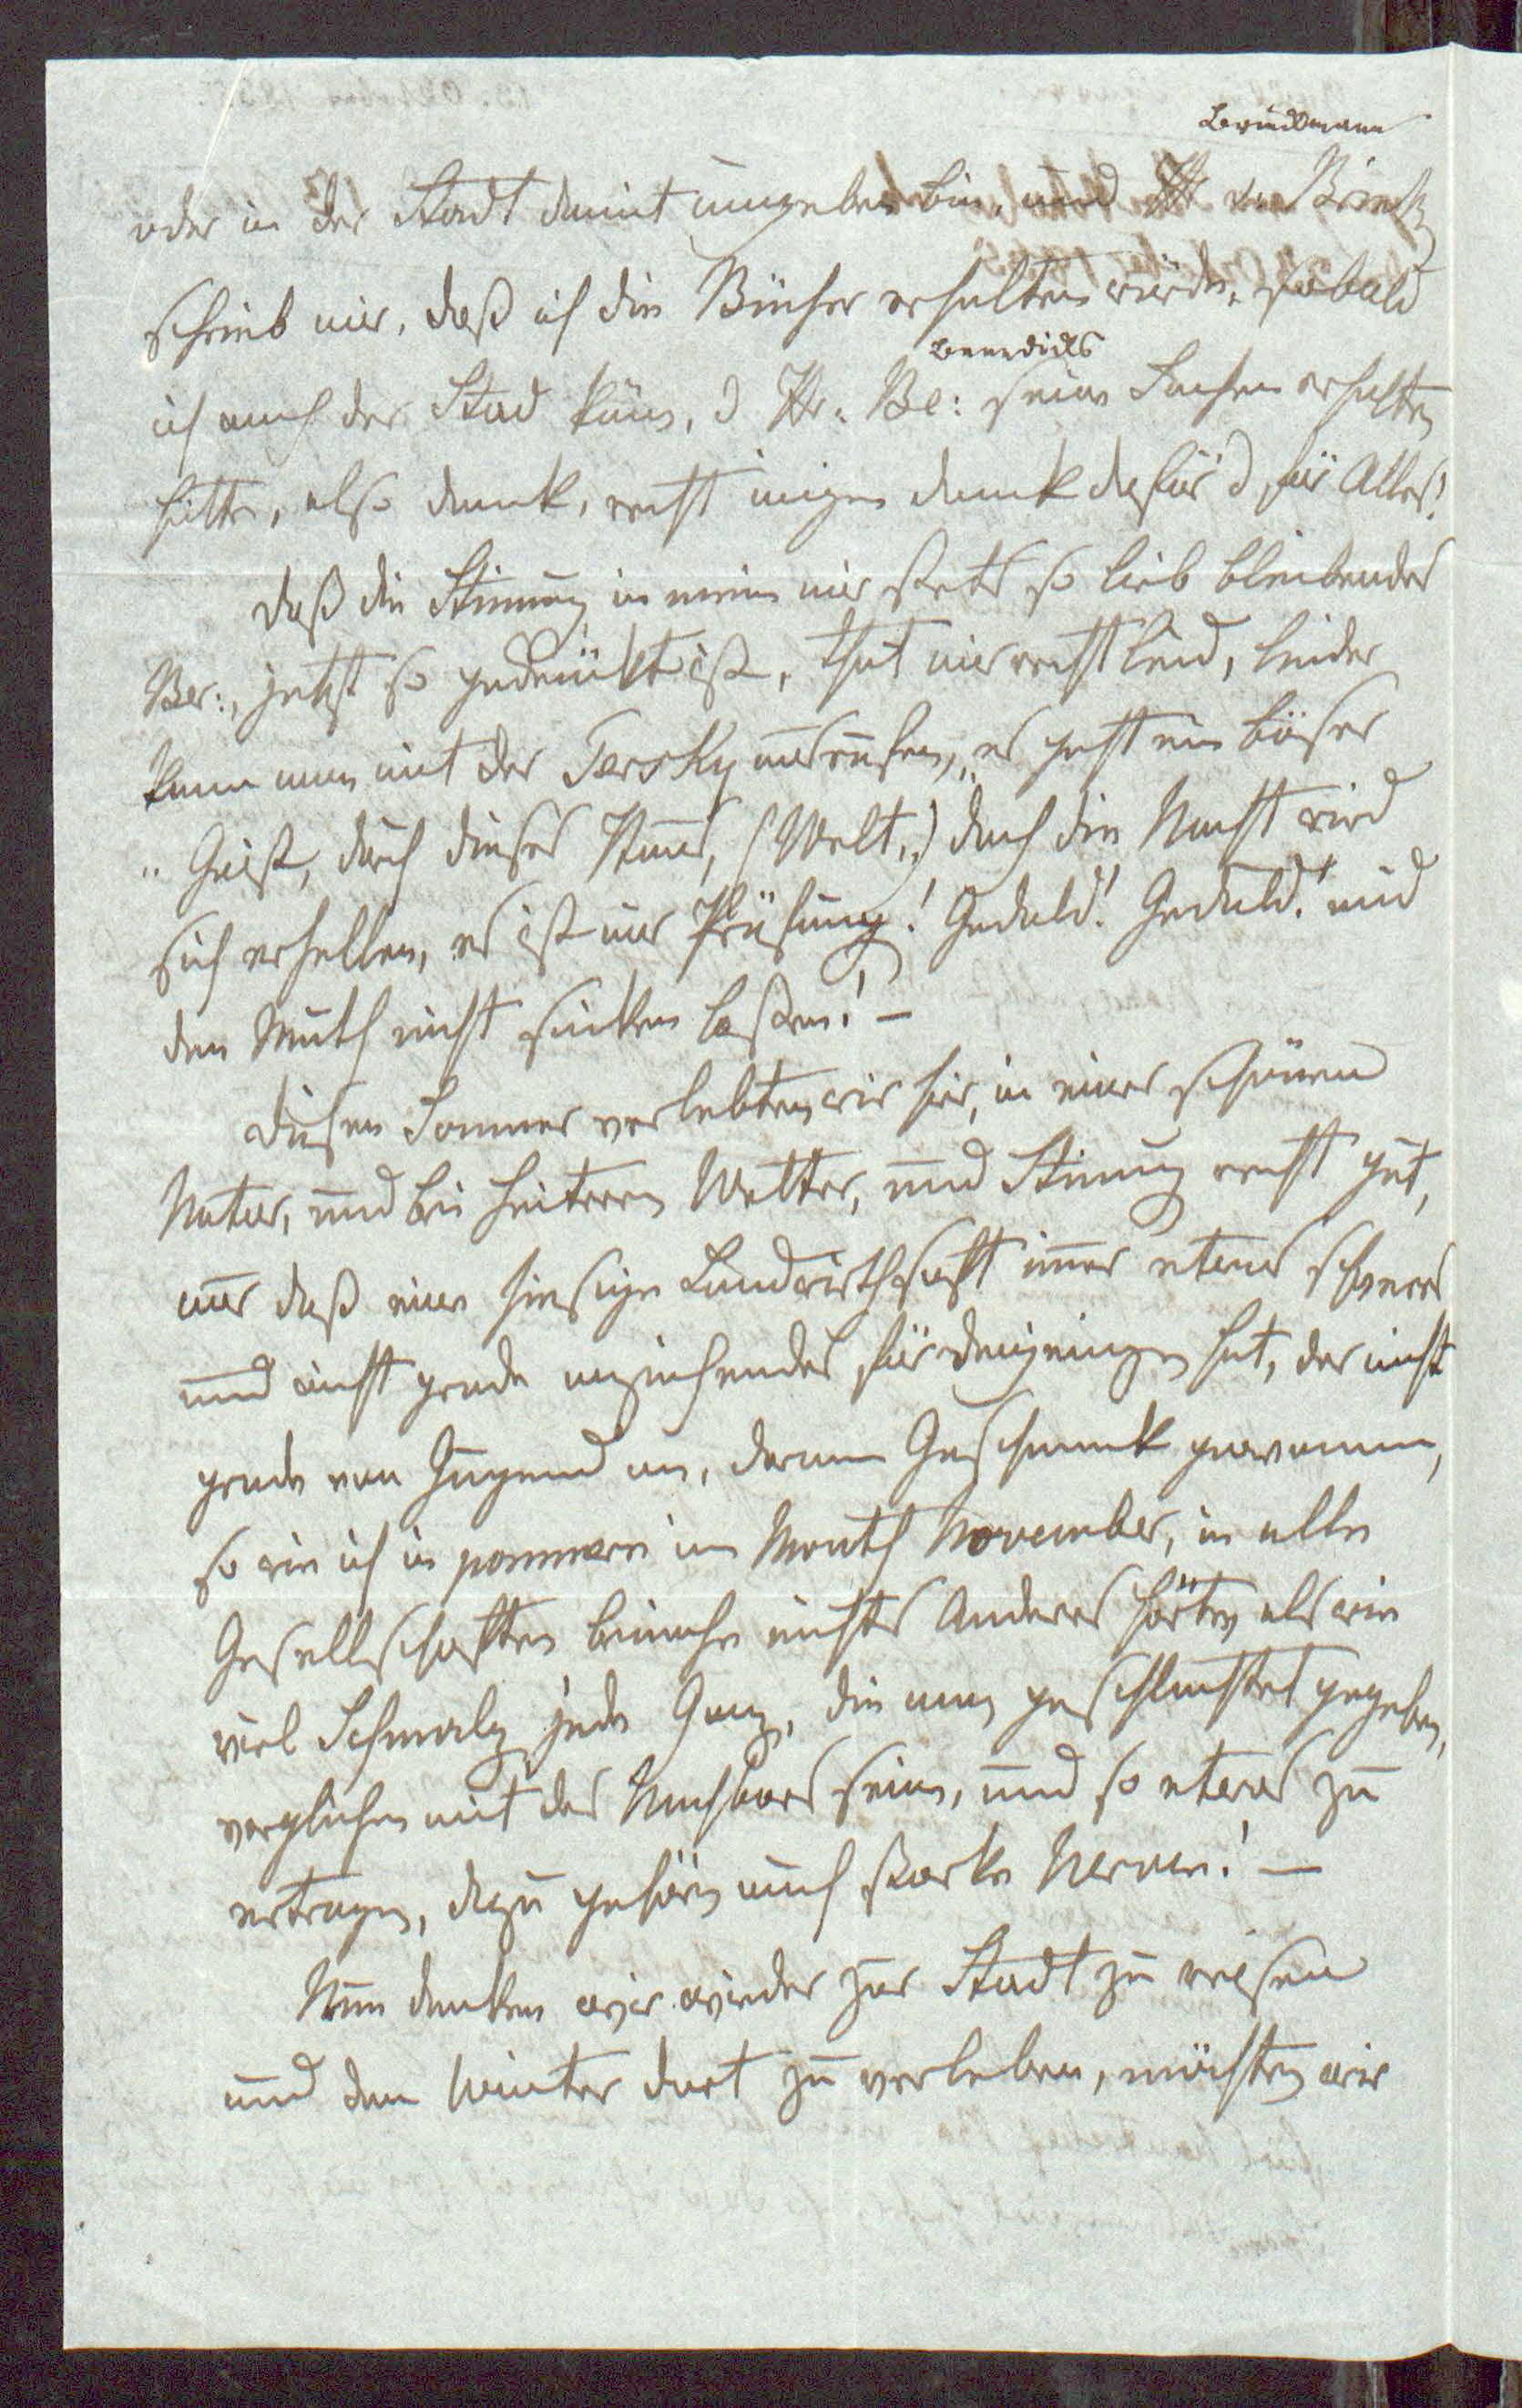 Brinckmann
oder in der Stadt damit umgeben bin, und Hr v. Brinck
schrieb mir, daß ich die Bücher erhalten würde, sobald
Benedicks
ich nach der Stad käm, & Hr. Be: seine Sachen erhalten
hätte, also dank, recht innigen dank dafür & für Alles!
daß die Stimung in meine mir stets so lieb bleibender
Ber:, jetzt so gedrückt ist, thut mir recht leid, leider
kann man mit der Tersky ausrufen, „es geht ein böser
„Geist, durch dieses Haus, (Welt,) doch die Nacht wird
sich erhellen, es ist nur Prüfung! Geduld! Geduld! und
den Muth nicht sinken laßen! —
diesen Sommer verlebten wir hier, in einer schönen
Natur, und bei heiterem Wetter, und Stimung recht gut,
nur daß eine hiesige Landwirthschaft imer etwas schweres
und nicht grade anziehendes für denjenigen hat, der nicht
grade von Jugend an, daran Geschmack gewonnen,
so wie ich in pommern im Month November, in allen
Gesellschaften beinahe nichts Anderes hörte, als wie
viel Schmalz jede Ganz, die man geschlachtet gegeben,
verglichen mit des Nachbars seine, und so etwas zu
ertragen, dazu gehören auch starke Nerven! —
Nun denken wir wieder zur Stadt zu reisen
und den Winter dort zu verleben, möchten wir